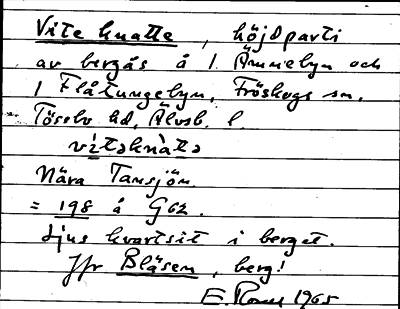 Vite knatte, höjdparti
av bergås å 1. Ämmelyn och
1 Flåtungebyn, Fröskogs sn.
Tössbo hd, Älvsb. l.
vìtəknàtə
Nära Tansjön.
= 198 å G62.
Ljus kvartsit i berget.
Jfr Blåsen, berg!
1965